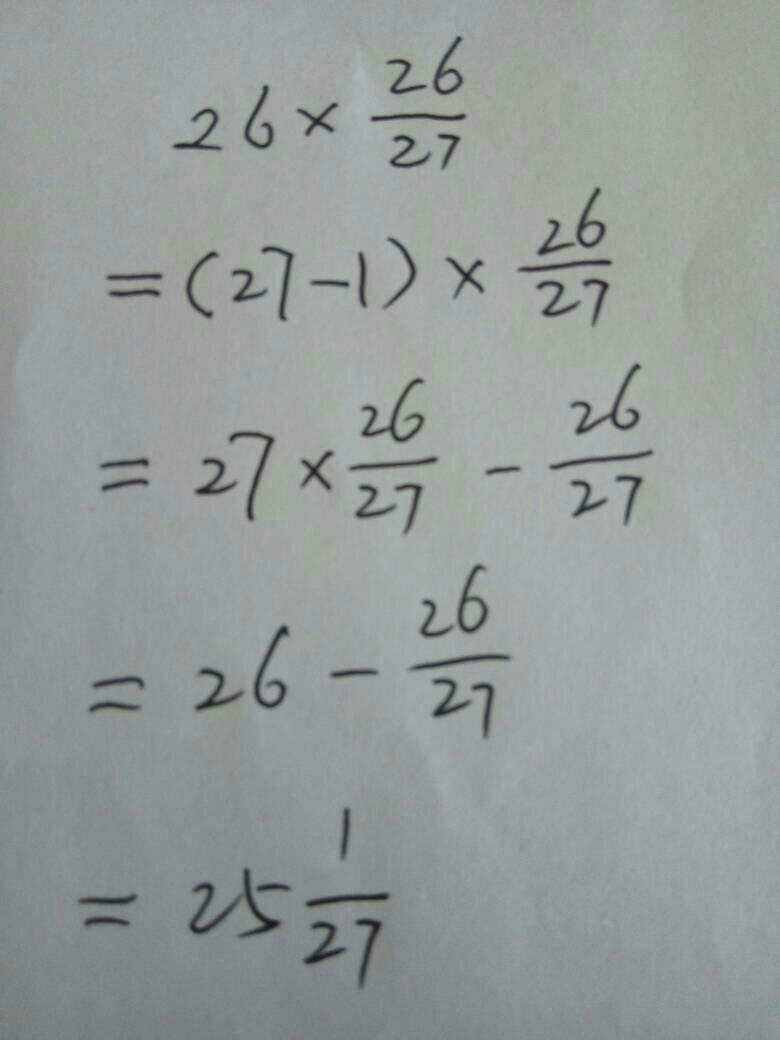 26 × 26/27
= (27 - 1) × 26/27
= 27 × 26/27 - 26/27
= 26 - 26/27
= 25 1/27